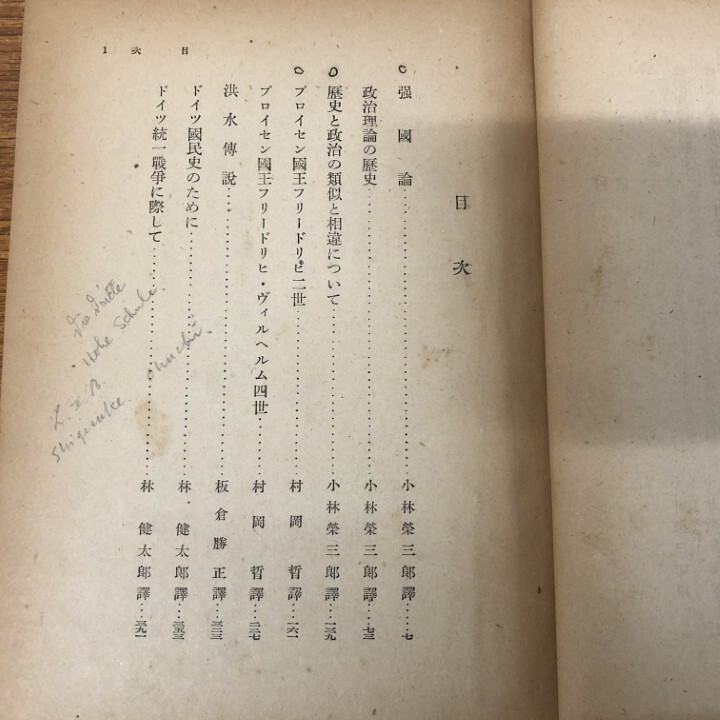 目次 1
目次
强國論……小林榮三郎譯……七
政治理論の歷史……小林榮三郎譯……七三
歷史と政治の類似と相違について……小林榮三郎譯……一三九
プロイセン國王フリードリヒ二世……村岡晢譯……一六一
プロイセン國王フリードリヒ・ヴィルヘルム四世……村岡晢譯……二二七
洪水傳說……板倉勝正譯……三三三
ドイツ國民史のために……林健太郞譯……三五三
ドイツ統一戰爭に際して……林健太郞譯……三九一
Die dritte
Hohe Schule.